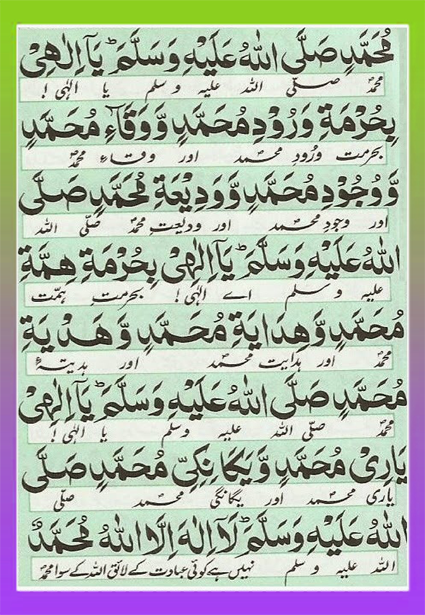 مُحَمَّدٍ صَلَّى اللهُ عَلَيْهِ وَسَلَّمَ ؕ يَآ اِلٰهِىْ
محمدؐ صلّی اللہ علیہ وسلم یا الٰہی !
بِحُرْمَةِ وَرُوْدِ مُحَمَّدٍ وَّوَقَآءِ مُحَمَّدٍ
بحرمت ورُودِ محمد اور وقاءِ محمدؐ
وَّوُجُوْدِ مُحَمَّدٍ وَّوَدِيْعَةِ مُحَمَّدٍ صَلَّى
اور وجودِ محمد اور ودیعتِ محمدؐ صلّی اللہ
اللهُ عَلَيْهِ وَسَلَّمَ ؕ يَآ اِلٰهِىْ بِحُرْمَةِ هِمَّةِ
علیہ وسلم اے الٰہی ! بحرمت ہمّت
مُحَمَّدٍ وَّهِدَايَةِ مُحَمَّدٍ وَّهَدْيَةِ
محمدؐ اور ہدایت محمد اور ہدیۂ
مُحَمَّدٍ صَلَّى اللهُ عَلَيْهِ وَسَلَّمَ ؕ يَآ اِلٰهِىْ
محمدؐ صلّی اللہ علیہ وسلم یا الٰہی !
يَارِىْ مُحَمَّدٍ وَّيَگَانگِىِّ مُحَمَّدٍ صَلَّى
یاری محمد اور یگانگی محمد صلی
اللهُ عَلَيْهِ وَسَلَّمَ ؕ لَآ اِلٰهَ اِلَّا اللهُ مُحَمَّدٌ
اللہ علیہ وسلم نہیں ہے کوئی عبادت کے لائق اللہ کے سوا محمدؐ